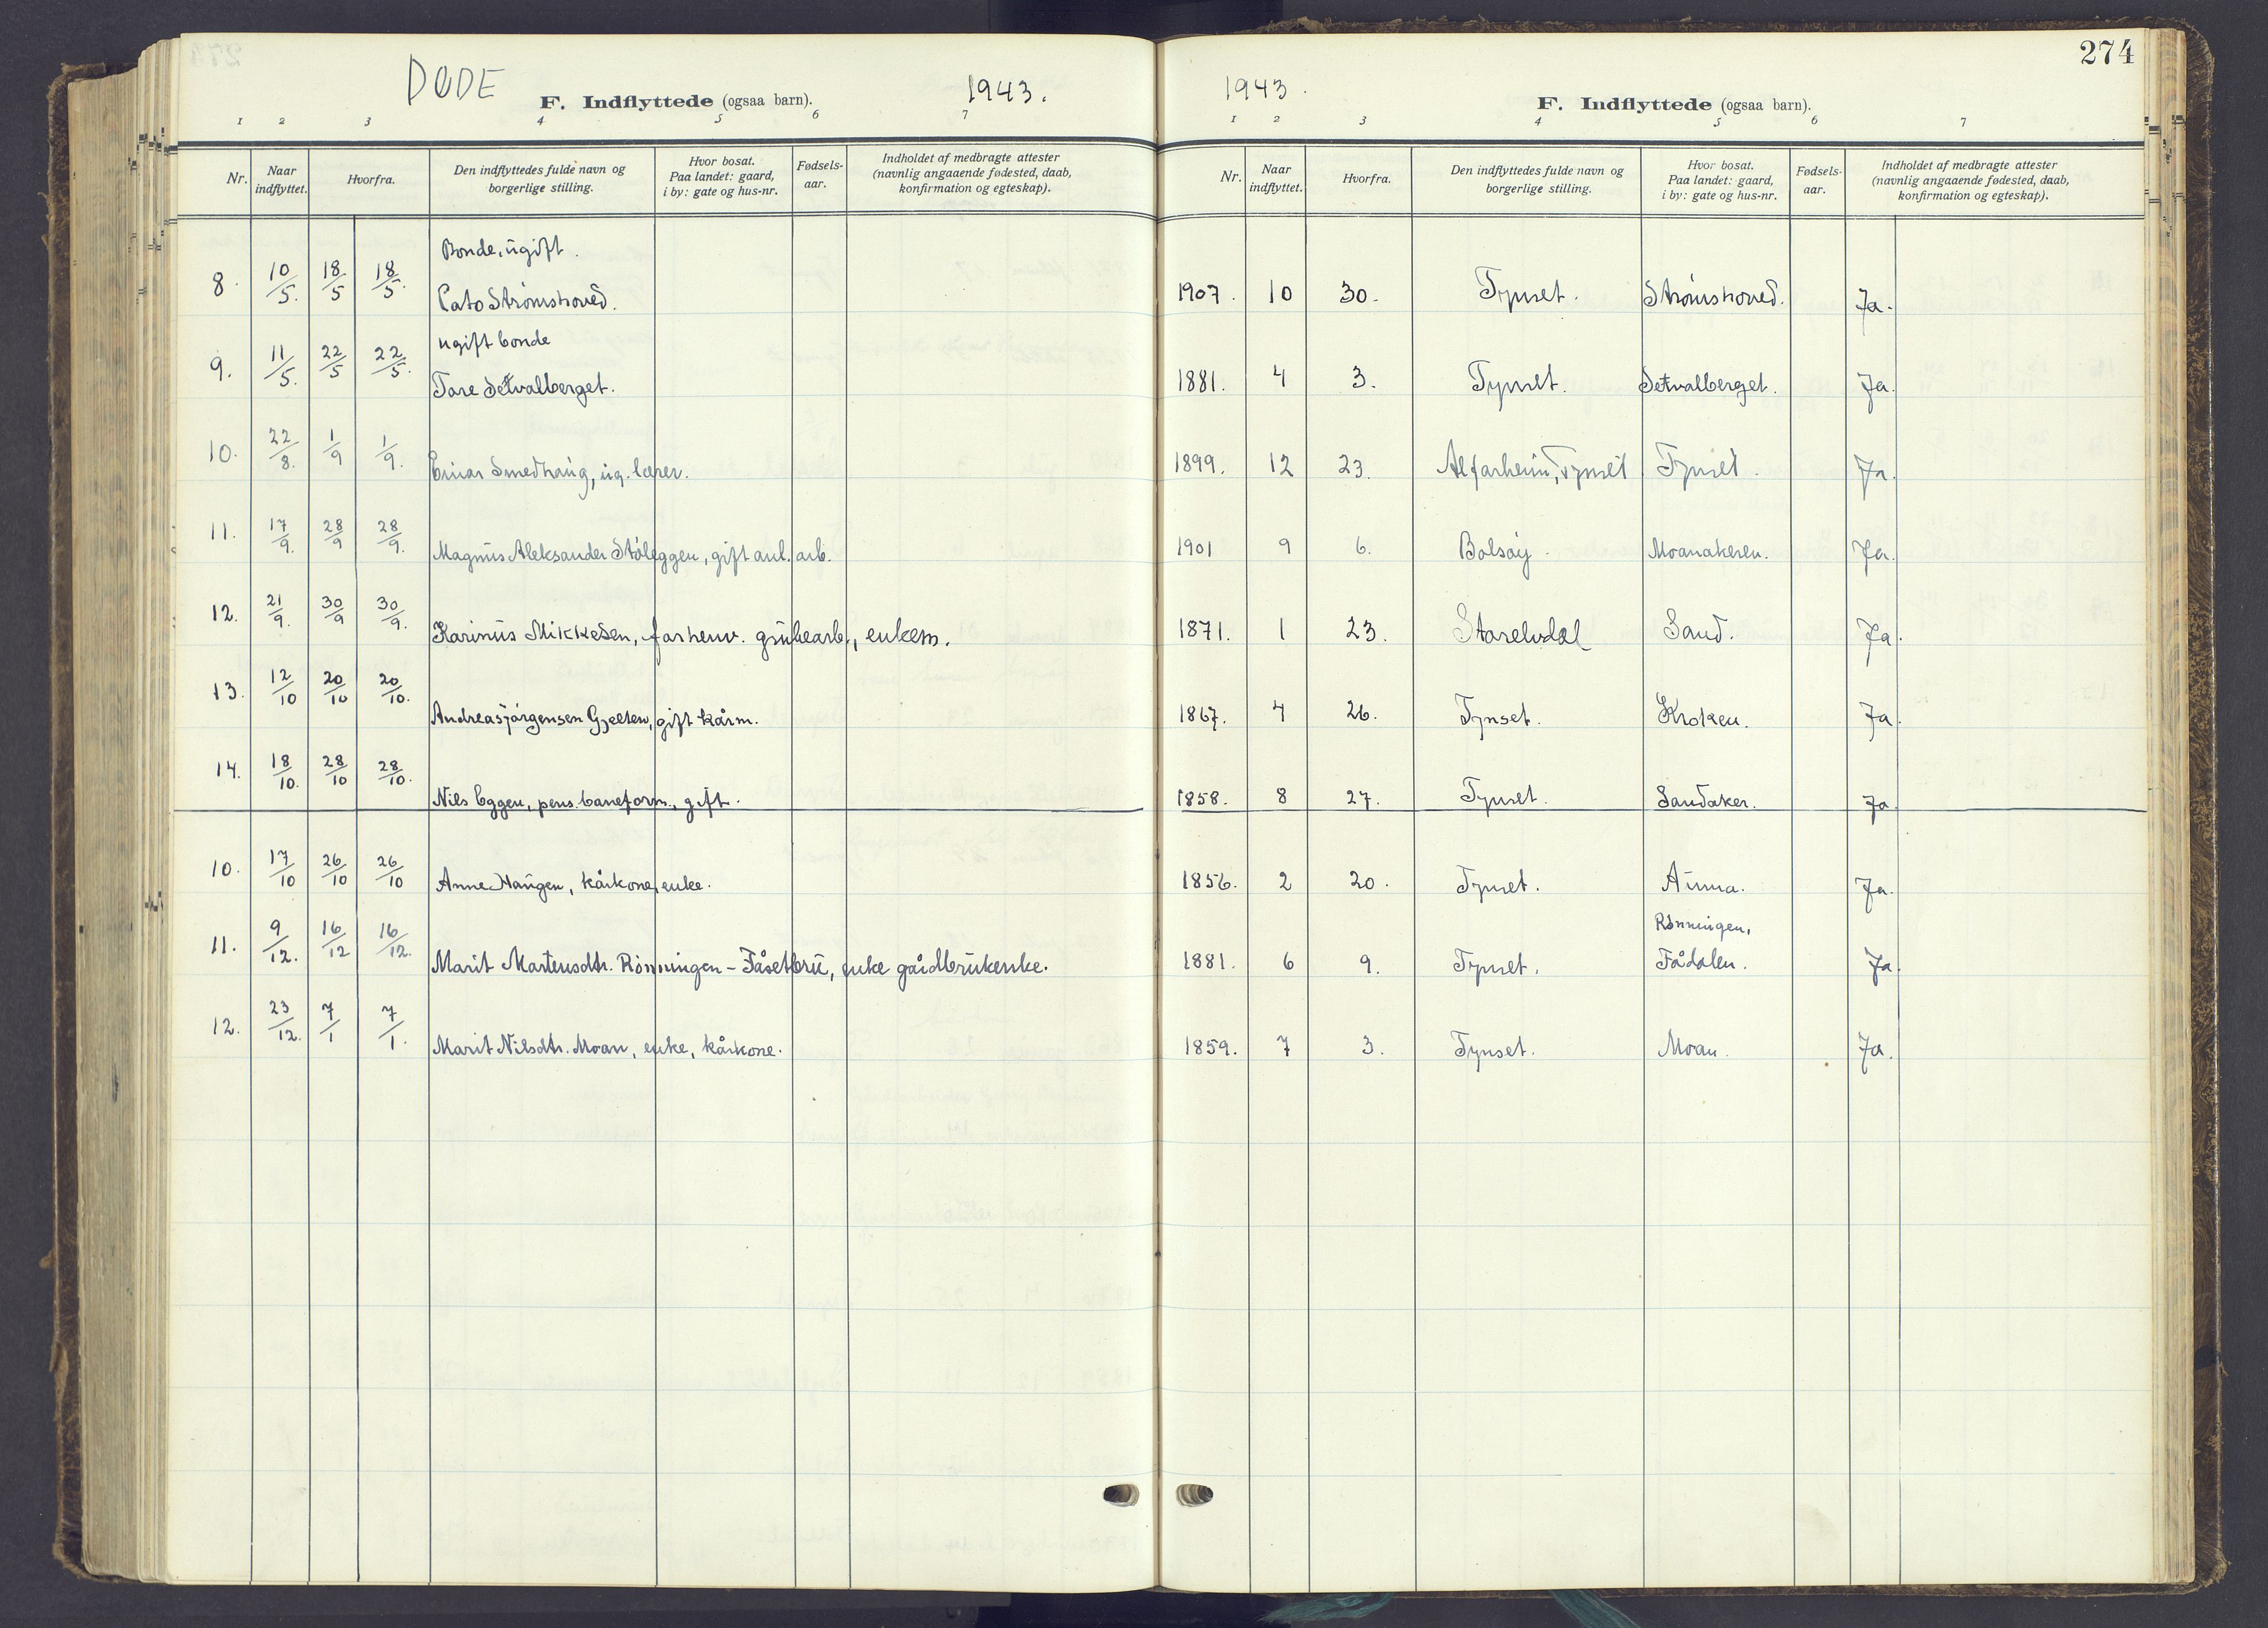 DØDE F. Indflyttede (ogsaa barn). 1943.
1 2 3 4 5 6 7
Nr. Naar indflyttet. Hvorfra. Den indflyttedes fulde navn og borgerlige stilling. Hvor bosat. Paa landet: gaard, i by: gate og hus-nr. Fødsels-aar. Indholdet af medbragte attester (navnlig angaaende fødested, daab, konfirmation og egteskap).
Bonde, ugift.
8. 10/5. 18/5 18/5. Cato Strømshoved.
ugift bonde
9. 11/5. 22/5 22/5. Tore Setvalberget.
10. 22/8. 1/9 1/9. Einar Smedhaug, ug. lærer.
11. 17/9. 28/9 28/9. Magnus Aleksander Støleggen, gift anl. arb.
12. 21/9. 30/9 30/9. Karinus Mikkelsen, forhenv. grubearb., enkem.
13. 12/10 20/10 20/10. Andreas Jørgensen Gjelten, gift kårm.
14. 18/10. 28/10 28/10. Nils Eggen, pens. baneform., gift.
10. 17/10 26/10 26/10 Anne Haugen, kårkone, enke.
11. 9/12. 16/12 16/12. Marit Martensdtr. Rønningen - Fåsetbru, enke gårdbrukenke.
12. 23/12. 7/1 7/1. Marit Nilsdtr. Moan, enke, kårkone.
274
1943. F. Indflyttede (ogsaa barn).
1 2 3 4 5 6 7
Nr. Naar indflyttet. Hvorfra. Den indflyttedes fulde navn og borgerlige stilling. Hvor bosat. Paa landet: gaard, i by: gate og hus-nr. Fødsels-aar. Indholdet af medbragte attester (navnlig angaaende fødested, daab, konfirmation og egteskap).
1907. 10 30. Tynset. Strømshoved. Ja.
1881. 4 3. Tynset. Setvalberget. Ja.
1899. 12 23. Alfarheim, Tynset Tynset. Ja.
1901 9 6. Bolsøy. Moanakeren. Ja.
1871. 1 23. Storelvdal Sand. Ja.
1867. 4 26. Tynset. Kroken. Ja.
1858. 8 27. Tynset. Sandaker. Ja
1856. 2 20. Tynset. Auma. Ja.
Rønningen,
1881. 6 9. Tynset. Fådalen. Ja.
1859. 7 3. Tynset. Moan. Ja.